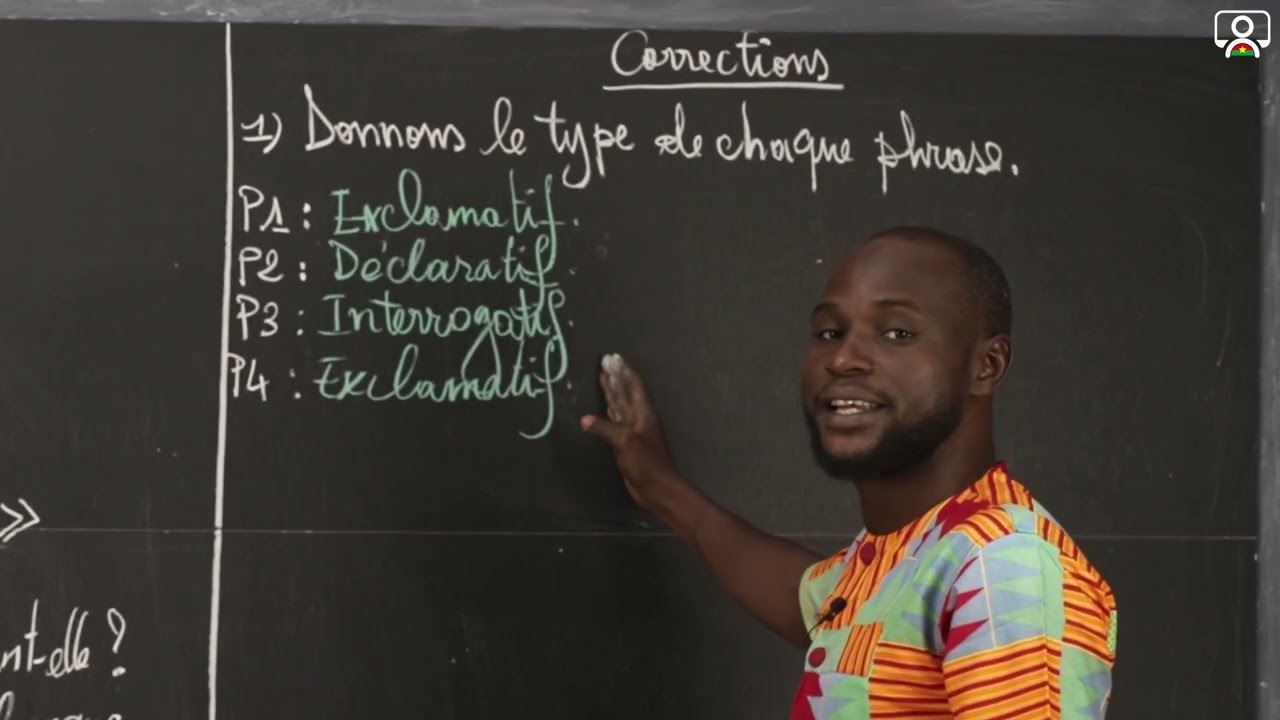 Corrections
1) Donnons le type de chaque phrase.
P1 : Exclamatif.
P2 : Déclaratif.
P3 : Interrogatif.
P4 : Exclamatif.
»
nt-elle ?